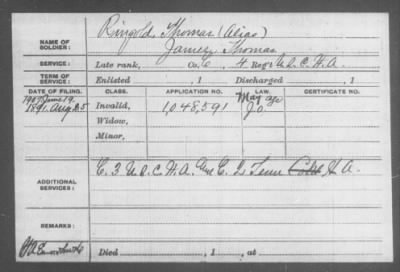 NAME OF SOLDIER: Ringold, Thomas (Alias)
James, Thomas
SERVICE: Late rank, Co. C, 4 Reg't U.S.C.H.A.
TERM OF SERVICE: Enlisted , 1 Discharged , 1
DATE OF FILING. CLASS. APPLICATION NO. LAW. CERTIFICATE NO.
1907 June 19. May
1891. Aug Invalid, 1,048,591 J.O.
Widow,
Minor,
ADDITIONAL SERVICES: C. 3 U.S.C.H.A. and C. 2 Tenn H.A.
REMARKS:
Died , 1 , at